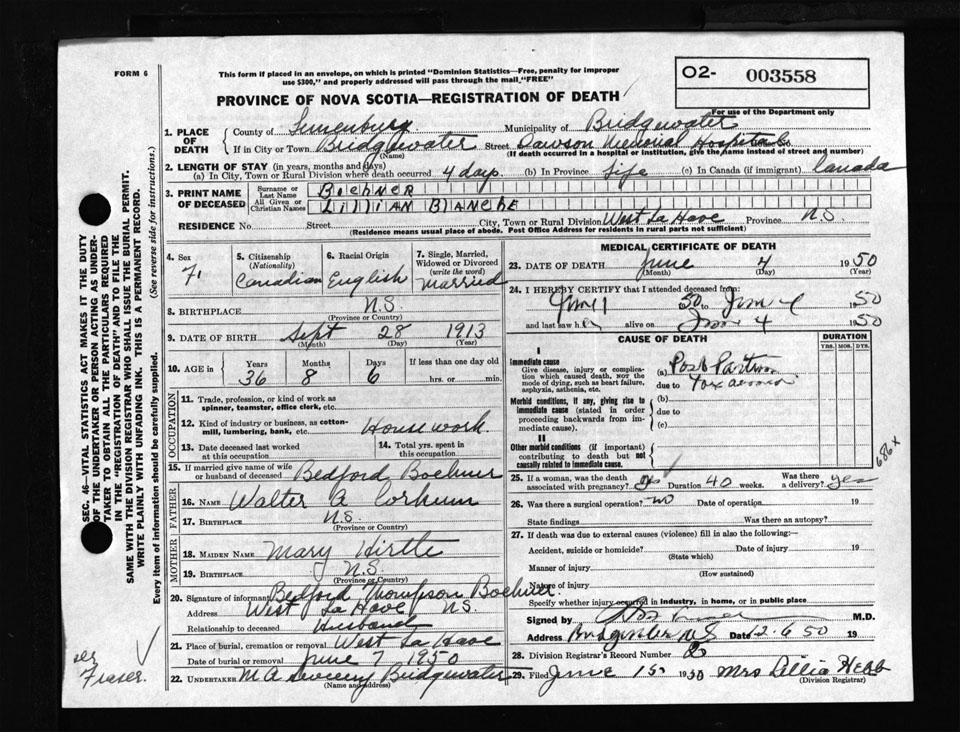 FORM 6
This form if placed in an envelope, on which is printed "Dominion Statistics—Free, penalty for improper
use $300," and properly addressed will pass through the mail "FREE"
O2- 003558
For use of the Department only
PROVINCE OF NOVA SCOTIA—REGISTRATION OF DEATH
1. PLACE OF DEATH County of Lunenburg Municipality of Bridgewater
If in City or Town Bridgewater Street Dawson Memorial Hospital
(Name) (If death occurred in a hospital or institution, give the name instead of street and number)
2. LENGTH OF STAY (in years, months and days)
(a) In City, Town or Rural Division where death occurred 4 days (b) In Province Life (c) In Canada (if immigrant) Canada
3. PRINT NAME OF DECEASED Surname or Last Name BOEHNER
All Given or Christian Names LILLIAN BLANCHE
RESIDENCE No. Street City, Town or Rural Division West La Have Province N.S.
(Residence means usual place of abode. Post Office Address for residents in rural parts not sufficient)
4. Sex F.
5. Citizenship (Nationality) Canadian
6. Racial Origin English
7. Single, Married, Widowed or Divorced (write the word) Married
8. BIRTHPLACE N.S.
(Province or Country)
9. DATE OF BIRTH Sept 28 1913
(Month) (Day) (Year)
10. AGE in Years 36 Months 8 Days 6 If less than one day old hrs. or min.
OCCUPATION
11. Trade, profession, or kind of work as spinner, teamster, office clerk, etc.
12. Kind of industry or business, as cotton-mill, lumbering, bank, etc. Housework
13. Date deceased last worked at this occupation
14. Total yrs. spent in this occupation
15. If married give name of wife or husband of deceased Bedford Boehner
FATHER
16. NAME Walter A Corkum
17. BIRTHPLACE N.S.
(Province or Country)
MOTHER
18. MAIDEN NAME Mary Hirtle
19. BIRTHPLACE N.S.
(Province or Country)
20. Signature of informant Bedford Thompson Boehner.
Address West La Have N.S.
Relationship to deceased Husband
21. Place of burial, cremation or removal West La Have
Date of burial or removal June 7 1950
22. UNDERTAKER M A Sweeny Bridgewater
(Name and address)
MEDICAL CERTIFICATE OF DEATH
23. DATE OF DEATH June 4 1950
(Month) (Day) (Year)
24. I HEREBY CERTIFY that I attended deceased from:
June 1 50 to June 4 1950
and last saw her alive on June 4 1950
CAUSE OF DEATH DURATION
YRS. MOS. DYS.
I
Immediate cause
Give disease, injury or complication which caused death, not the mode of dying, such as heart failure, asphyxia, asthenia, etc.
(a) Post Partum
due to Toxaemia
Morbid conditions, if any, giving rise to immediate cause (stated in order proceeding backwards from immediate cause).
(b)
due to
(c)
II
Other morbid conditions (if important) contributing to death but not causally related to immediate cause.
686 x
25. If a woman, was the death associated with pregnancy? yes Duration 40 weeks. Was there a delivery? yes
26. Was there a surgical operation? no Date of operation 19
State findings Was there an autopsy?
27. If death was due to external causes (violence) fill in also the following:—
Accident, suicide or homicide? Date of injury 19
(State which)
Manner of injury
(How sustained)
Nature of injury
Specify whether injury occurred in industry, in home, or in public place
Signed by M.D.
Address Bridgewater N S Date 12.6.50 19
28. Division Registrar's Record Number
29. Filed June 15 1950 Mrs Lillia Hebb
(Division Registrar)
SEC. 46—VITAL STATISTICS ACT MAKES IT THE DUTY
OF THE UNDERTAKER OR PERSON ACTING AS UNDER-
TAKER TO OBTAIN ALL THE PARTICULARS REQUIRED
IN THE "REGISTRATION OF DEATH" AND TO FILE THE
SAME WITH THE DIVISION REGISTRAR WHO SHALL ISSUE THE BURIAL PERMIT.
WRITE PLAINLY WITH UNFADING INK. THIS IS A PERMANENT RECORD.
Every item of information should be carefully supplied. (See reverse side for instructions.)
Fraser.